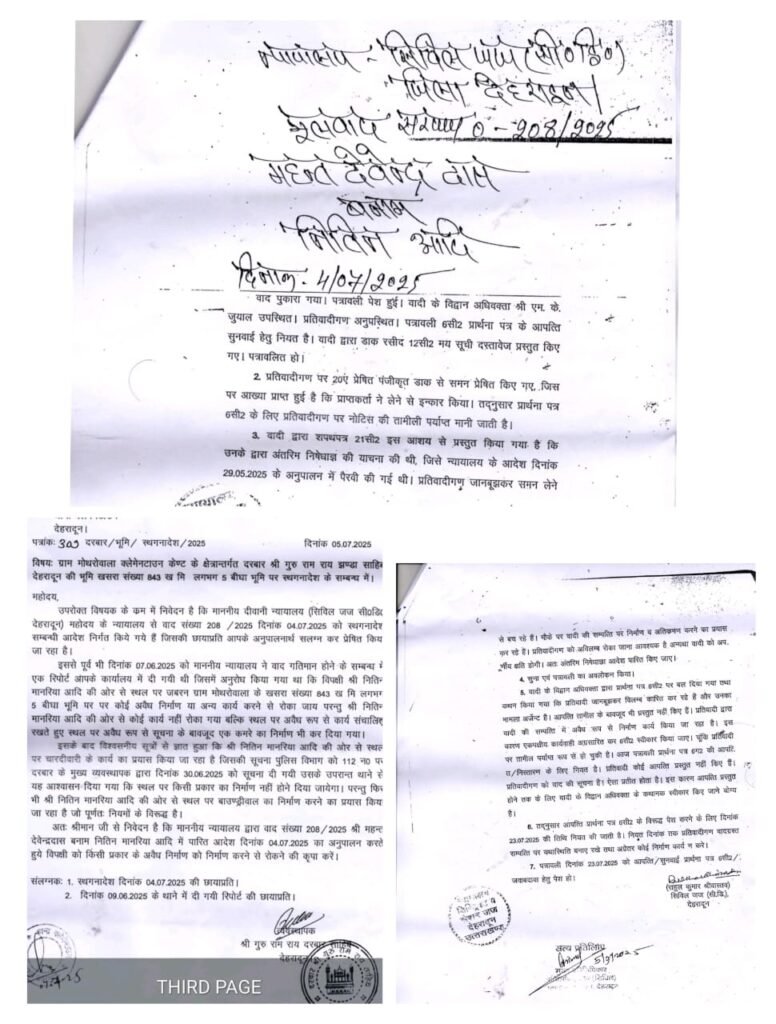 न्यायालय - सिविल जज (सी०डि०)
जिला देहरादून।
मूलवाद संख्या 0 - 208/2025
महन्त देवेन्द्र दास
बनाम
नितिन आदि
दिनांक - 4/07/2025
वाद पुकारा गया। पत्रावली पेश हुई। वादी के विद्वान अधिवक्ता श्री एम. के.
जुयाल उपस्थित। प्रतिवादीगण अनुपस्थित। पत्रावली 6सी2 प्रार्थना पत्र के आपत्ति
सुनवाई हेतु नियत है। वादी द्वारा डाक रसीद 12सी2 मय सूची दस्तावेज प्रस्तुत किए
गए। पत्रावलित हो।
2. प्रतिवादीगण पर 20ए प्रेषित पंजीकृत डाक से समन प्रेषित किए गए, जिस
पर आख्या प्राप्त हुई है कि प्राप्तकर्ता ने लेने से इन्कार किया। तद्नुसार प्रार्थना पत्र
6सी2 के लिए प्रतिवादीगण पर नोटिस की तामीली पर्याप्त मानी जाती है।
3. वादी द्वारा शपथपत्र 21सी2 इस आशय से प्रस्तुत किया गया है कि
उनके द्वारा अंतरिम निषेधाज्ञा की याचना की थी, जिसे न्यायालय के आदेश दिनांक
29.05.2025 के अनुपालन में पैरवी की गई थी। प्रतिवादीगण जानबूझकर समन लेने
देहरादून।
पत्रांकः 309 दरबार/भूमि/ स्थगनादेश/2025 दिनांक 05.07.2025
विषयः ग्राम मोथरोवाला क्लेमेनटाउन केण्ट के क्षेत्रान्तर्गत दरबार श्री गुरु राम राय झण्डा साहिब
देहरादून की भूमि खसरा संख्या 843 ख मि लगभग 5 बीघा भूमि पर स्थगनादेश के सम्बन्ध में।
महोदय,
उपरोक्त विषयक के कम में निवेदन है कि माननीय दीवानी न्यायालय (सिविल जज सी0डि0
देहरादून) महोदय के न्यायालय से वाद संख्या 208 /2025 दिनांक 04.07.2025 को स्थगनादेश
सम्बन्धी आदेश निर्गत किये गये हैं जिसकी छायाप्रति आपके अनुपालनार्थ सलग्न कर प्रेषित किया
जा रहा है।
इससे पूर्व भी दिनांक 07.06.2025 को माननीय न्यायालय ने वाद गतिमान होने के सम्बन्ध में
एक रिपोर्ट आपके कार्यालय में दी गयी थी जिसमें अनुरोध किया गया था कि विपक्षी श्री नितिन
मानरिया आदि की ओर से स्थल पर जबरन ग्राम मोथरोवाला के खसरा संख्या 843 ख मि लगभग
5 बीघा भूमि पर पर कोई अवैध निर्माण या अन्य कार्य करने से रोका जाय परन्तु श्री नितिन
मानरिया आदि की ओर से कोई कार्य नहीं रोका गया बल्कि स्थल पर अवैध रूप से कार्य संचालित
रखते हुए स्थल पर अवैध रूप से सूचना के बावजूद एक कमरे का निर्माण भी कर दिया गया।
इसके बाद विश्वसनीय सूत्रों से ज्ञात हुआ कि श्री नितिन मानरिया आदि की ओर से स्थल
पर चारदीवारी के कार्य का प्रयास किया जा रहा है जिसकी सूचना पुलिस विभाग को 112 नं0 पर
दरबार के मुख्य व्यवस्थापक द्वारा दिनांक 30.06.2025 को सूचना दी गयी उसके उपरान्त थाने से
यह आश्वासन दिया गया कि स्थल पर किसी प्रकार का निर्माण नहीं होने दिया जायेगा। परन्तु फिर
भी श्री नितिन मानरिया आदि की ओर से स्थल पर बाउण्ड्रीवाल का निर्माण करने का प्रयास किया
जा रहा है जो पूर्णतः नियमों के विरूद्ध है।
अतः श्रीमान जी से निवेदन है कि माननीय न्यायालय द्वारा वाद संख्या 208/2025 श्री महन्त
देवेन्द्रदास बनाम नितिन मानरिया आदि में पारित आदेश दिनांक 04.07.2025 का अनुपालन करते
हुये विपक्षी को किसी प्रकार के अवैध निर्माण को निर्माण करने से रोकने की कृपा करें।
संलग्नकः 1. स्थगनादेश दिनांक 04.07.2025 की छायाप्रति।
2. दिनांक 09.06.2025 के थाने में दी गयी रिपोर्ट की छायाप्रति।
व्यवस्थापक
श्री गुरु राम राय दरबार साहिब
देहरादून
THIRD PAGE
से बच रहे हैं। मौके पर वादी की सम्पत्ति पर निर्माण व अतिक्रमण करने का प्रयास
कर रहे हैं। प्रतिवादीगण को अविलम्ब रोका जाना आवश्यक है अन्यथा वादी को अपू-
र्णीय क्षति होगी। अतः अंतरिम निषेधाज्ञा आदेश पारित किए जाए।
4. सुना एवं पत्रावली का अवलोकन किया।
5. वादी के विद्वान अधिवक्ता द्वारा प्रार्थना पत्र 6सी2 पर बल दिया गया तथा
कथन किया गया कि प्रतिवादी जानबूझकर विलम्ब कारित कर रहे है और उनका
मामला अर्जेन्ट है। आपत्ति तामील के बावजूद भी प्रस्तुत नहीं किए हैं। प्रतिवादी द्वारा
वादी की सम्पत्ति में अवैध रूप से निर्माण कार्य किया जा रहा है। इस
कारण एकपक्षीय कार्यवाही अग्रसारित कर 6सी2 स्वीकार किया जाए। चूंकि प्रतिवादी
पर तामील पर्याप्त रूप से हो चुकी है। आज पत्रावली प्रार्थना पत्र 6ग2 की आपत्ति-
त/निस्तारण के लिए नियत है। प्रतिवादी कोई आपत्ति प्रस्तुत नहीं किए हैं।
प्रतिवादीगण को वाद की सूचना है। ऐसा प्रतीत होता है। इस कारण आपत्ति प्रस्तुत
होने तक के लिए वादी के विद्वान अधिवक्ता के कथानक स्वीकार किए जाने योग्य
है।
6. तद्नुसार आपत्ति प्रार्थना पत्र 6सी2 के विरूद्ध पेश करने के लिए दिनांक
23.07.2025 की तिथि नियत की जाती है। नियुत दिनांक तक प्रतिवादीगण वादग्रस्त
सम्पत्ति पर यथास्थिति बनाए रखे तथा अग्रेतर कोई निर्माण कार्य न करे।
7. पत्रावली दिनांक 23.07.2025 को आपत्ति/सुनवाई प्रार्थना पत्र 6सी2/
जवाबदावा हेतु पेश हो।
(राहुल कुमार श्रीवास्तव)
सिविल जज (सी.डि.),
देहरादून
सत्य प्रतिलिपि
5/7/2025